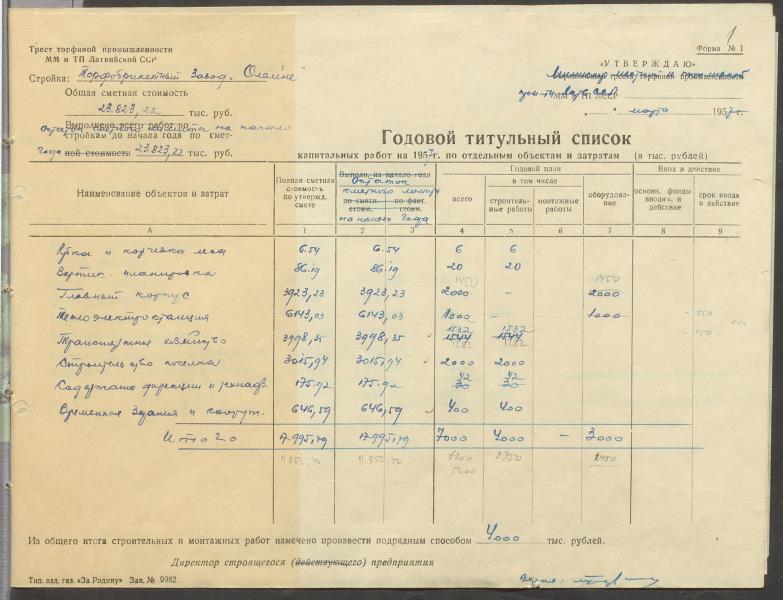 1
Форма № 1
Трест торфяной промышленности
ММ и ТП Латвийской ССР
Стройка: Торфобрикетный Завод „Олайне"
Общая сметная стоимость
23.823,22 тыс. руб.
Выполнено всего работ по
остаток сметного лимита на начало
стройкам до начала года по смет-
года ной стоимости 23.823,22 тыс. руб.
«УТВЕРЖДАЮ»
ММ и ТП ЛССР
марта 1957 г.
Годовой титульный список
капитальных работ на 1957 г. по отдельным объектам и затратам (в тыс. рублей)
Наименование объектов и затрат
Полная сметная стоимость по утвержд. смете
Выполн. на начало года
Остаток сметного лимита
по сметн. стоим.
по факт. стоим.
на начало года
Годовой план
всего
в том числе
строитель- ные работы
монтажные работы
оборудова- ние
Ввод в действие
основн. фонды вводим. в действие
срок ввода в действие
А 1 2 3 4 5 6 7 8 9
Рубка и корчевка леса 6.54 6.54 6 6
Вертик. планировка 86.19 86.19 20 20
1450 1450
Главный корпус 3923,23 3923,23 2000 – 2000
Теплоэлектростанция 6143,03 6143,03 1000 – 1000
1532 1532
Транспортное хозяйство 3998,35 3998,35 1544 1544
Строительство поселка 3015,94 3015,94 2000 2000
42 42
Содержание дирекции и технадз. 175.92 175.92 30 30
Временные здания и сооруж. 646,59 646,59 400 400
Итого 17.995,79 17.995,79 7000 4000 – 3000
11.852,76 11.852,76 6200 3750 2450
5200
Из общего итога строительных и монтажных работ намечено произвести подрядным способом 4000 тыс. рублей.
Директор строящегося (действующего) предприятия
Тип. изд. газ. «За Родину» Зак. № 9982